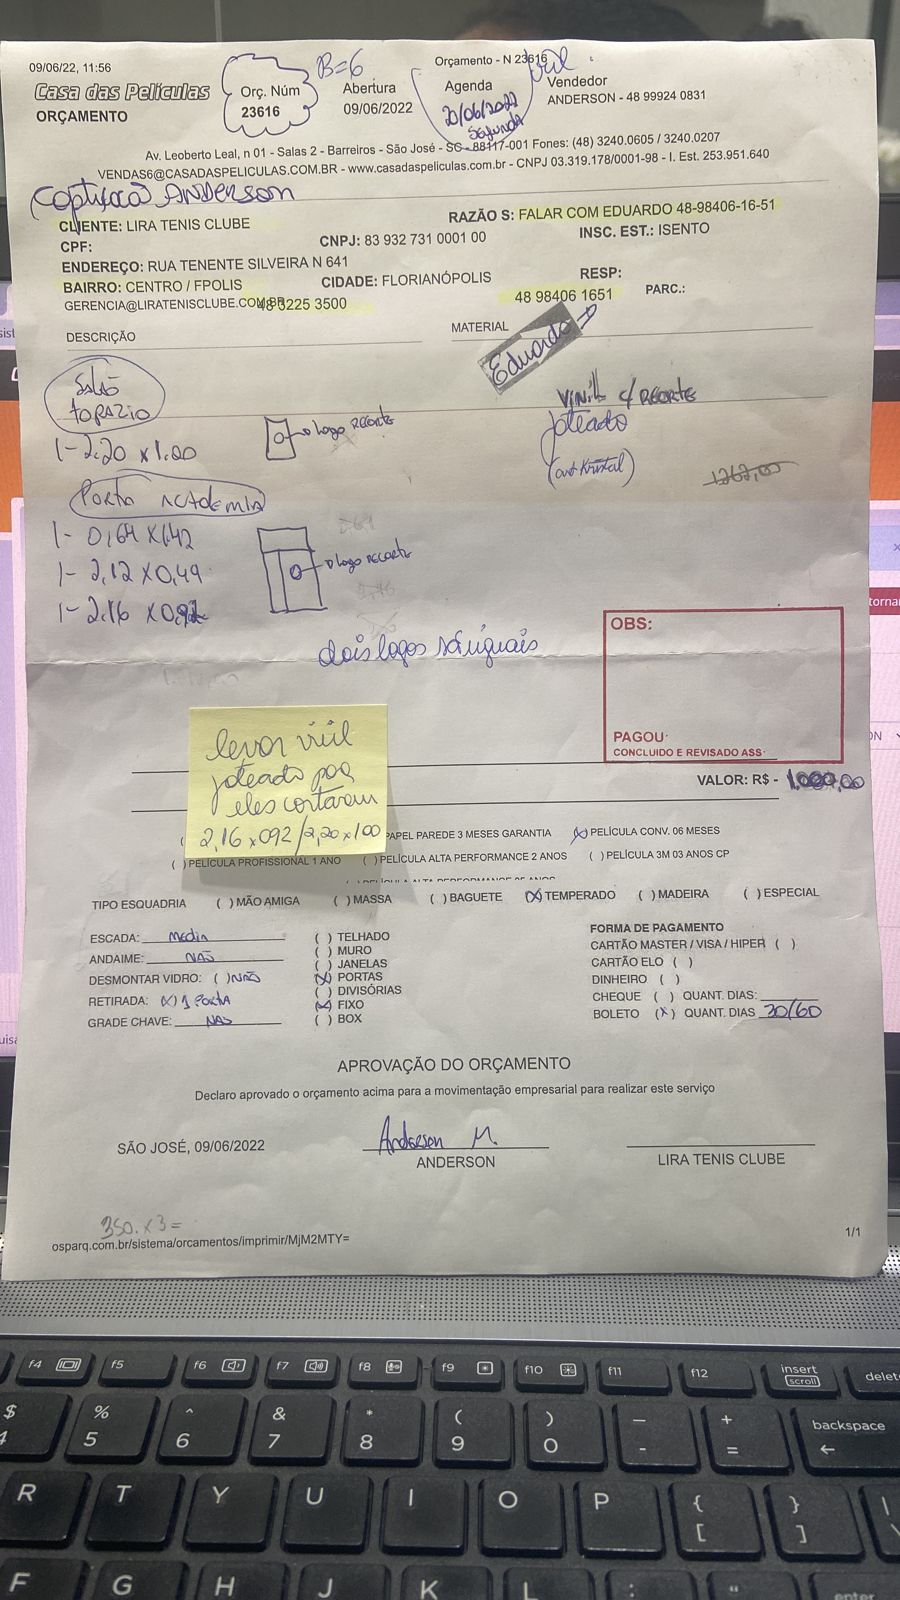 09/06/22, 11:56
Orçamento - N 23616
B=6
Casa das Películas
ORÇAMENTO
Orç. Núm
23616
Abertura
09/06/2022
Agenda
20/06/2022
Segunda
Vendedor
ANDERSON - 48 99924 0831
Av. Leoberto Leal, n 01 - Salas 2 - Barreiros - São José - SC - 88117-001 Fones: (48) 3240.0605 / 3240.0207
VENDAS6@CASADASPELICULAS.COM.BR - www.casadaspeliculas.com.br - CNPJ 03.319.178/0001-98 - I. Est. 253.951.640
ANDERSON
CLIENTE: LIRA TENIS CLUBE
RAZÃO S: FALAR COM EDUARDO 48-98406-16-51
CPF:
CNPJ: 83 932 731 0001 00
INSC. EST.: ISENTO
ENDEREÇO: RUA TENENTE SILVEIRA N 641
BAIRRO: CENTRO / FPOLIS
CIDADE: FLORIANÓPOLIS
RESP:
GERENCIA@LIRATENISCLUBE.COM.BR
48 3225 3500
48 98406 1651
PARC.:
DESCRIÇÃO
MATERIAL
Eduardo
Salão
topazio
1-2,20 x 1,00
logo recorte
VINIL c/ RECORTE
Joteado
1262,00
Porta Academia
1- 0,64 x 1,42
1- 2,12 x 0,49
1- 2,16 x 0,92
logo recorte
dois logos são iguais
OBS:
PAGOU
CONCLUIDO E REVISADO ASS
levar vinil
joteado pra
eles cortarem
2,16 x 092 / 2,20 x 100
VALOR: R$ - 1.000,00
PAPEL PAREDE 3 MESES GARANTIA
(x) PELÍCULA CONV. 06 MESES
( ) PELÍCULA PROFISSIONAL 1 ANO
( ) PELÍCULA ALTA PERFORMANCE 2 ANOS
( ) PELÍCULA 3M 03 ANOS CP
TIPO ESQUADRIA ( ) MÃO AMIGA ( ) MASSA ( ) BAGUETE (x) TEMPERADO ( ) MADEIRA ( ) ESPECIAL
ESCADA: Media
ANDAIME: NÃO
DESMONTAR VIDRO: ( ) NÃO
RETIRADA: (x) 1 PORTA
GRADE CHAVE: NÃO
( ) TELHADO
( ) MURO
( ) JANELAS
(x) PORTAS
( ) DIVISÓRIAS
(x) FIXO
( ) BOX
FORMA DE PAGAMENTO
CARTÃO MASTER / VISA / HIPER ( )
CARTÃO ELO ( )
DINHEIRO ( )
CHEQUE ( ) QUANT. DIAS:
BOLETO (x) QUANT. DIAS 30/60
APROVAÇÃO DO ORÇAMENTO
Declaro aprovado o orçamento acima para a movimentação empresarial para realizar este serviço
SÃO JOSÉ, 09/06/2022
Anderson M.
ANDERSON
LIRA TENIS CLUBE
350. x 3 =
osparq.com.br/sistema/orcamentos/imprimir/MjM2MTY=
1/1
f4 f5 f6 f7 f8 f9 f10 f11 f12 insert delete
scroll
$ % ^ & * ( ) — + backspace
4 5 6 7 8 9 0 - = ←
R T Y U I O P { }
[ ]
F G H J K L : " enter